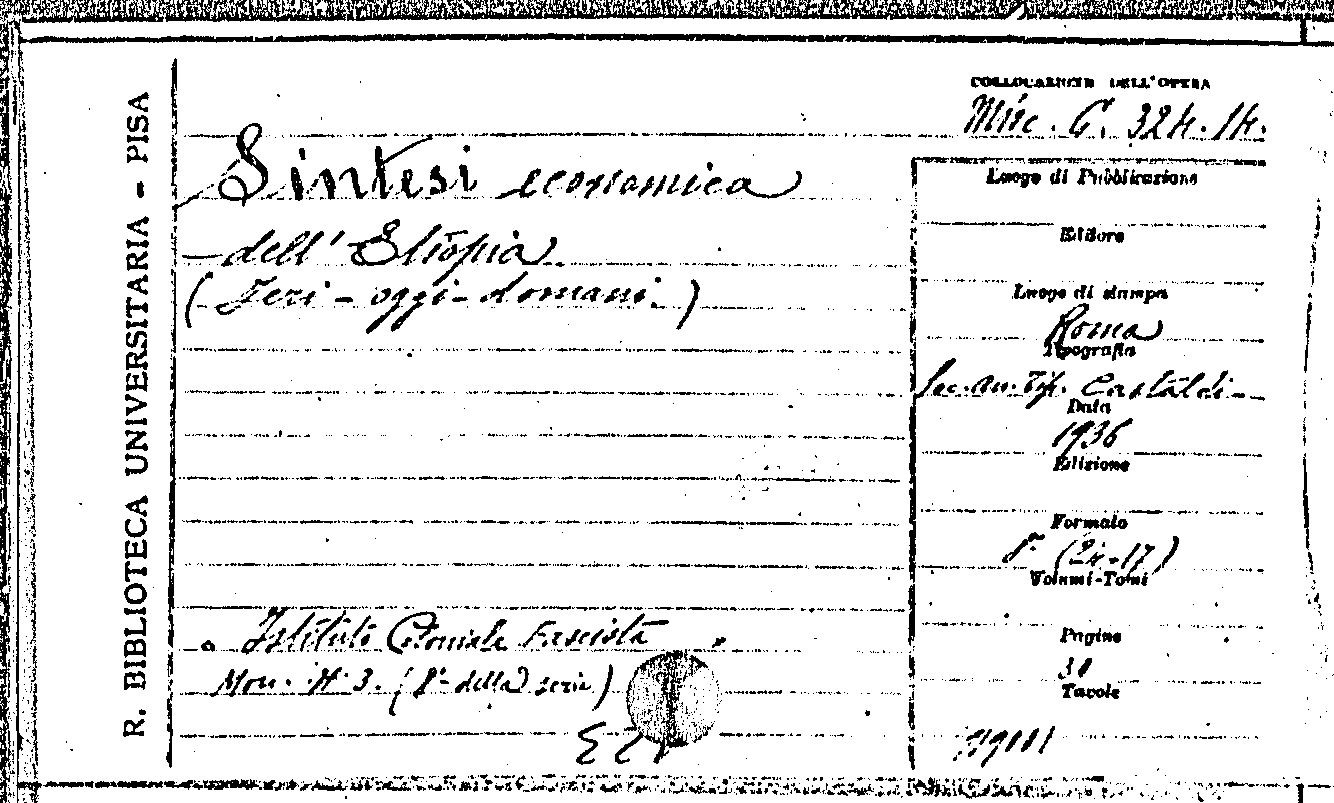 R. BIBLIOTECA UNIVERSITARIA - PISA
COLLOCAZIONE DELL'OPERA
Misc. C. 324. 14.
Sintesi economica
dell' Etiopia
(Ieri - oggi - domani.)
Luogo di Pubblicazione
Editore
Luogo di stampa
Roma
Tipografia
Soc. An. Tip. Castaldi
Data
1936
Edizione
Formato
8° (24-17)
Volumi-Tomi
Pagine
Tavole
" Istituto Coloniale Fascista "
Mon. N. 3. (8ª della serie)